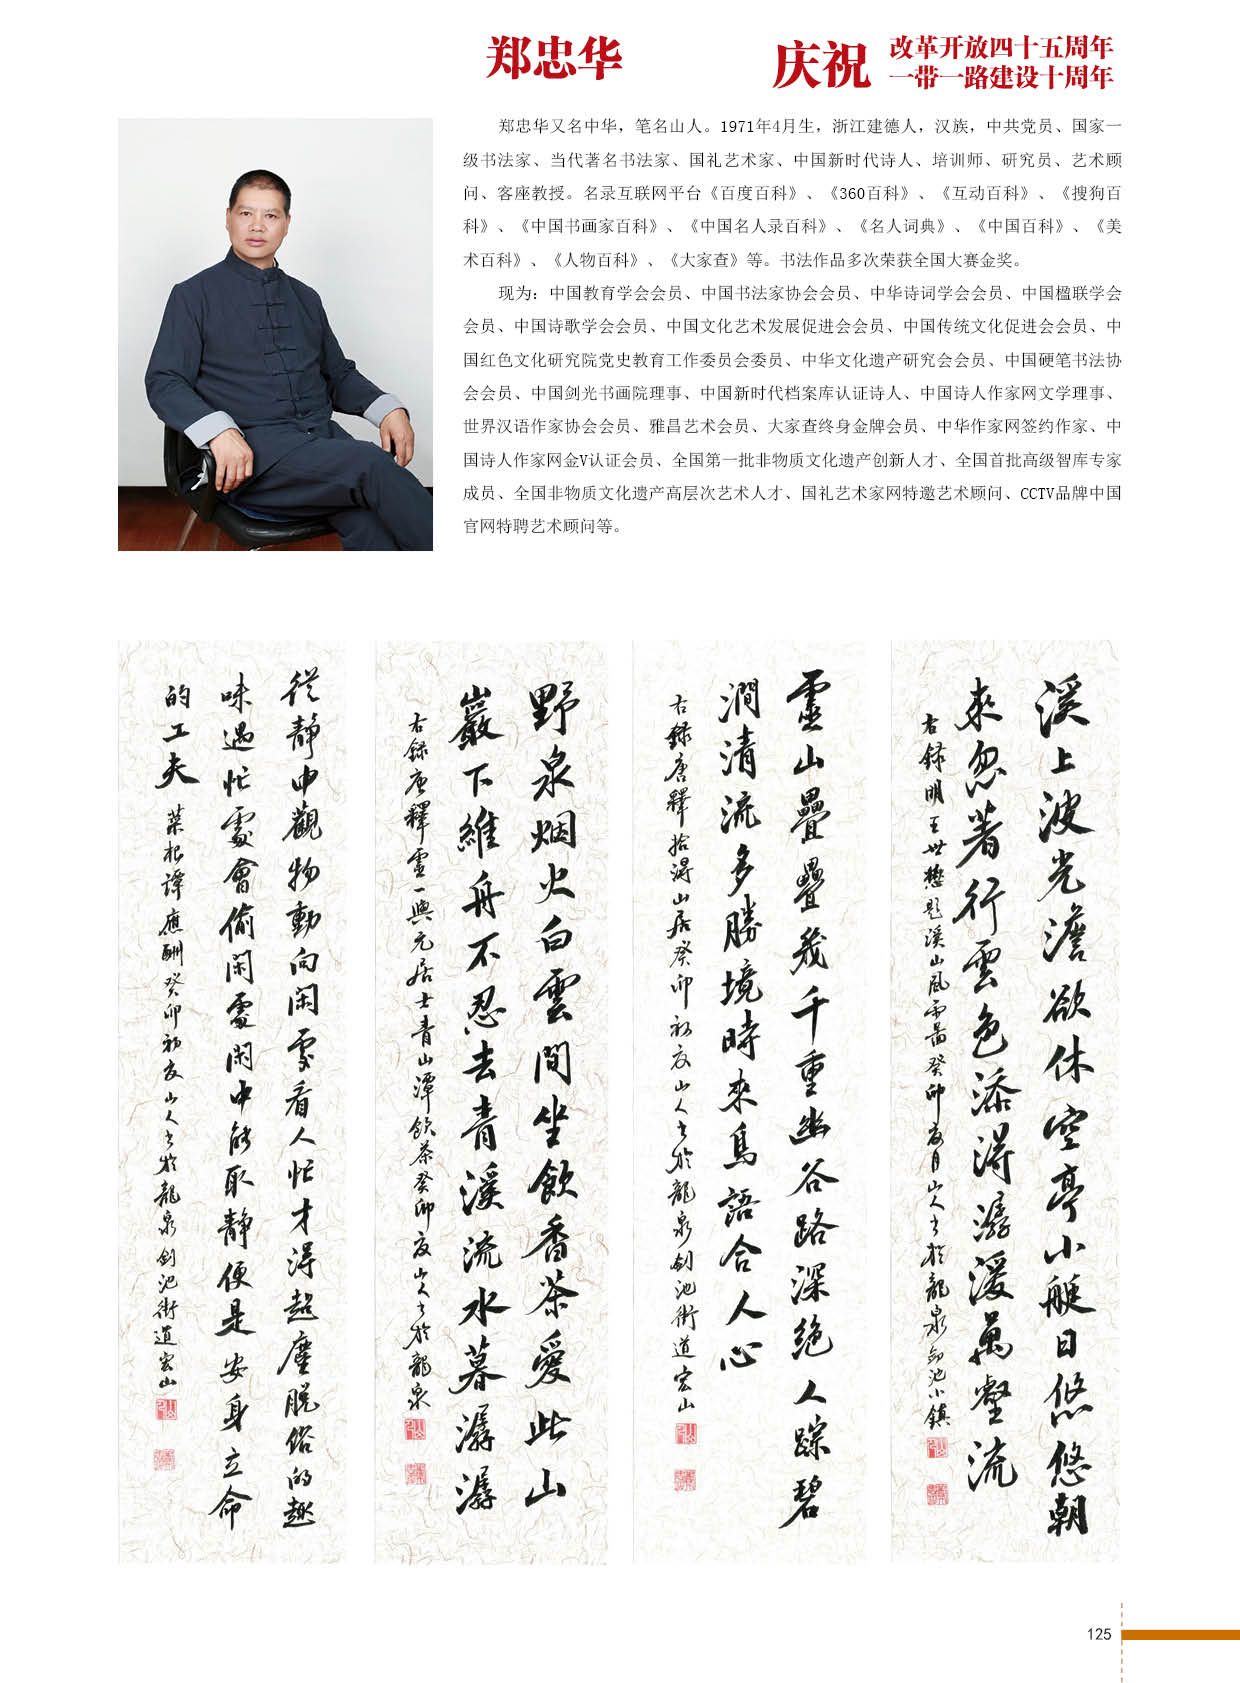 郑忠华
庆祝
改革开放四十五周年
一带一路建设十周年
郑忠华又名中华，笔名山人。1971年4月生，浙江建德人，汉族，中共党员、国家一
级书法家、当代著名书法家、国礼艺术家、中国新时代诗人、培训师、研究员、艺术顾
问、客座教授。名录互联网平台《百度百科》、《360百科》、《互动百科》、《搜狗百
科》、《中国书画家百科》、《中国名人录百科》、《名人词典》、《中国百科》、《美
术百科》、《人物百科》、《大家查》等。书法作品多次荣获全国大赛金奖。
现为：中国教育学会会员、中国书法家协会会员、中华诗词学会会员、中国楹联学会
会员、中国诗歌学会会员、中国文化艺术发展促进会会员、中国传统文化促进会会员、中
国红色文化研究院党史教育工作委员会委员、中华文化遗产研究会会员、中国硬笔书法协
会会员、中国剑光书画院理事、中国新时代档案库认证诗人、中国诗人作家网文学理事、
世界汉语作家协会会员、雅昌艺术会员、大家查终身金牌会员、中华作家网签约作家、中
国诗人作家网金V认证会员、全国第一批非物质文化遗产创新人才、全国首批高级智库专家
成员、全国非物质文化遗产高层次艺术人才、国礼艺术家网特邀艺术顾问、CCTV品牌中国
官网特聘艺术顾问等。
溪上波光澹欲休空亭小艇日悠悠朝
來忽著行雲色添得潺湲萬壑流
右録明王世懋題溪山風雨圖癸卯夏月山人書於龍泉劍池小鎮
靈山疊疊幾千重幽谷路深絶人踪碧
澗清流多勝境時來鳥語合人心
右録唐釋拾得山居癸卯初夏山人書於龍泉劍池街道宏山
野泉烟火白雲間坐飲香茶愛此山
巖下維舟不忍去青溪流水暮潺潺
右録唐釋靈一與元居士青山潭飲茶癸卯夏山人書於龍泉
從静中觀物動向閑處看人忙才得超塵脱俗的趣
味遇忙處會偷閑處閑中能取静便是安身立命
的工夫 菜根譚應酬癸卯初夏山人書於龍泉劍池街道宏山
125